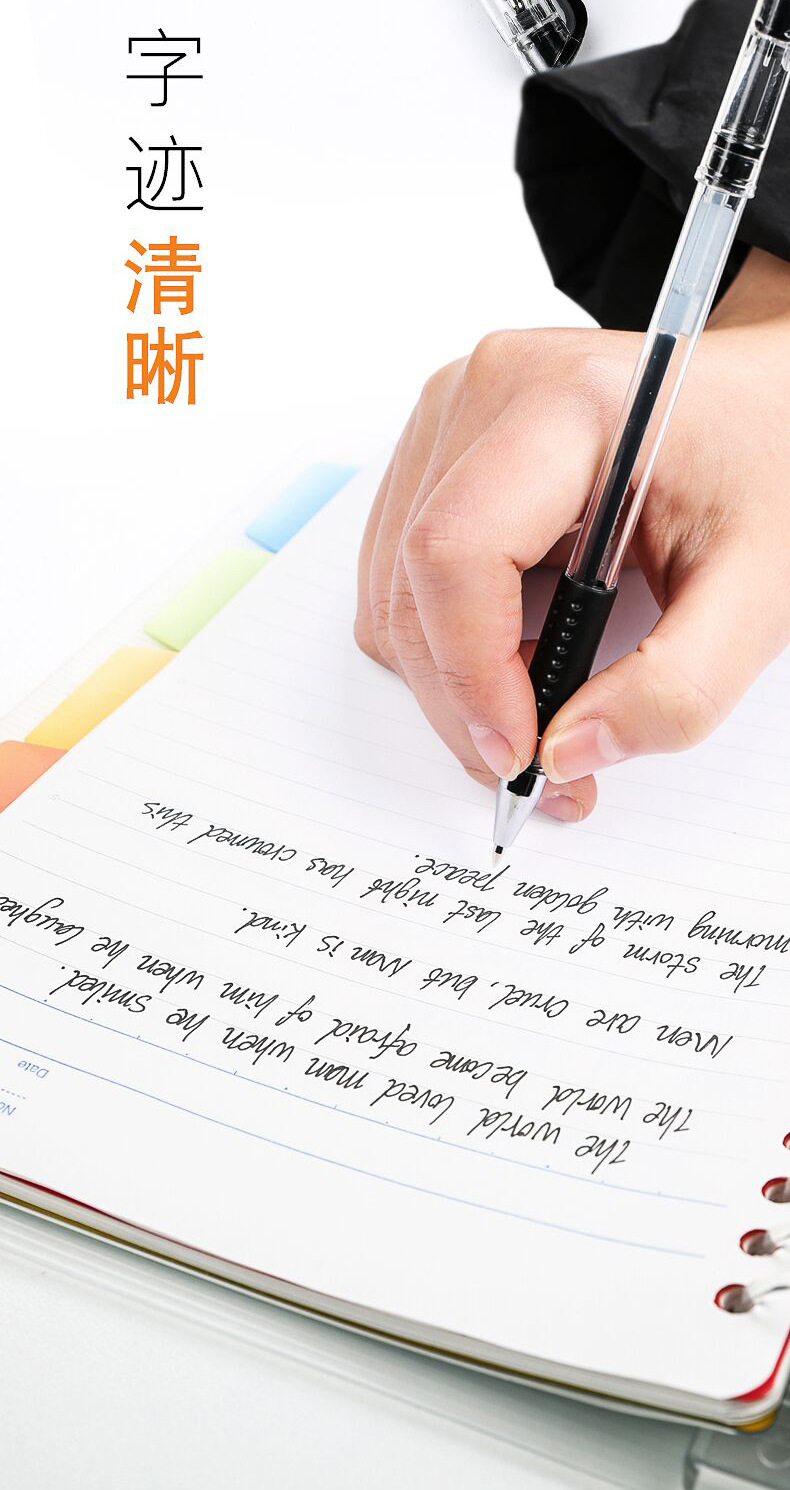 字迹清晰
The world loved man when he smiled.
The world became afraid of him when he laughed
Men are cruel, but Man is kind.
The storm of the last night has crowned this
morning with golden peace.
Date
No